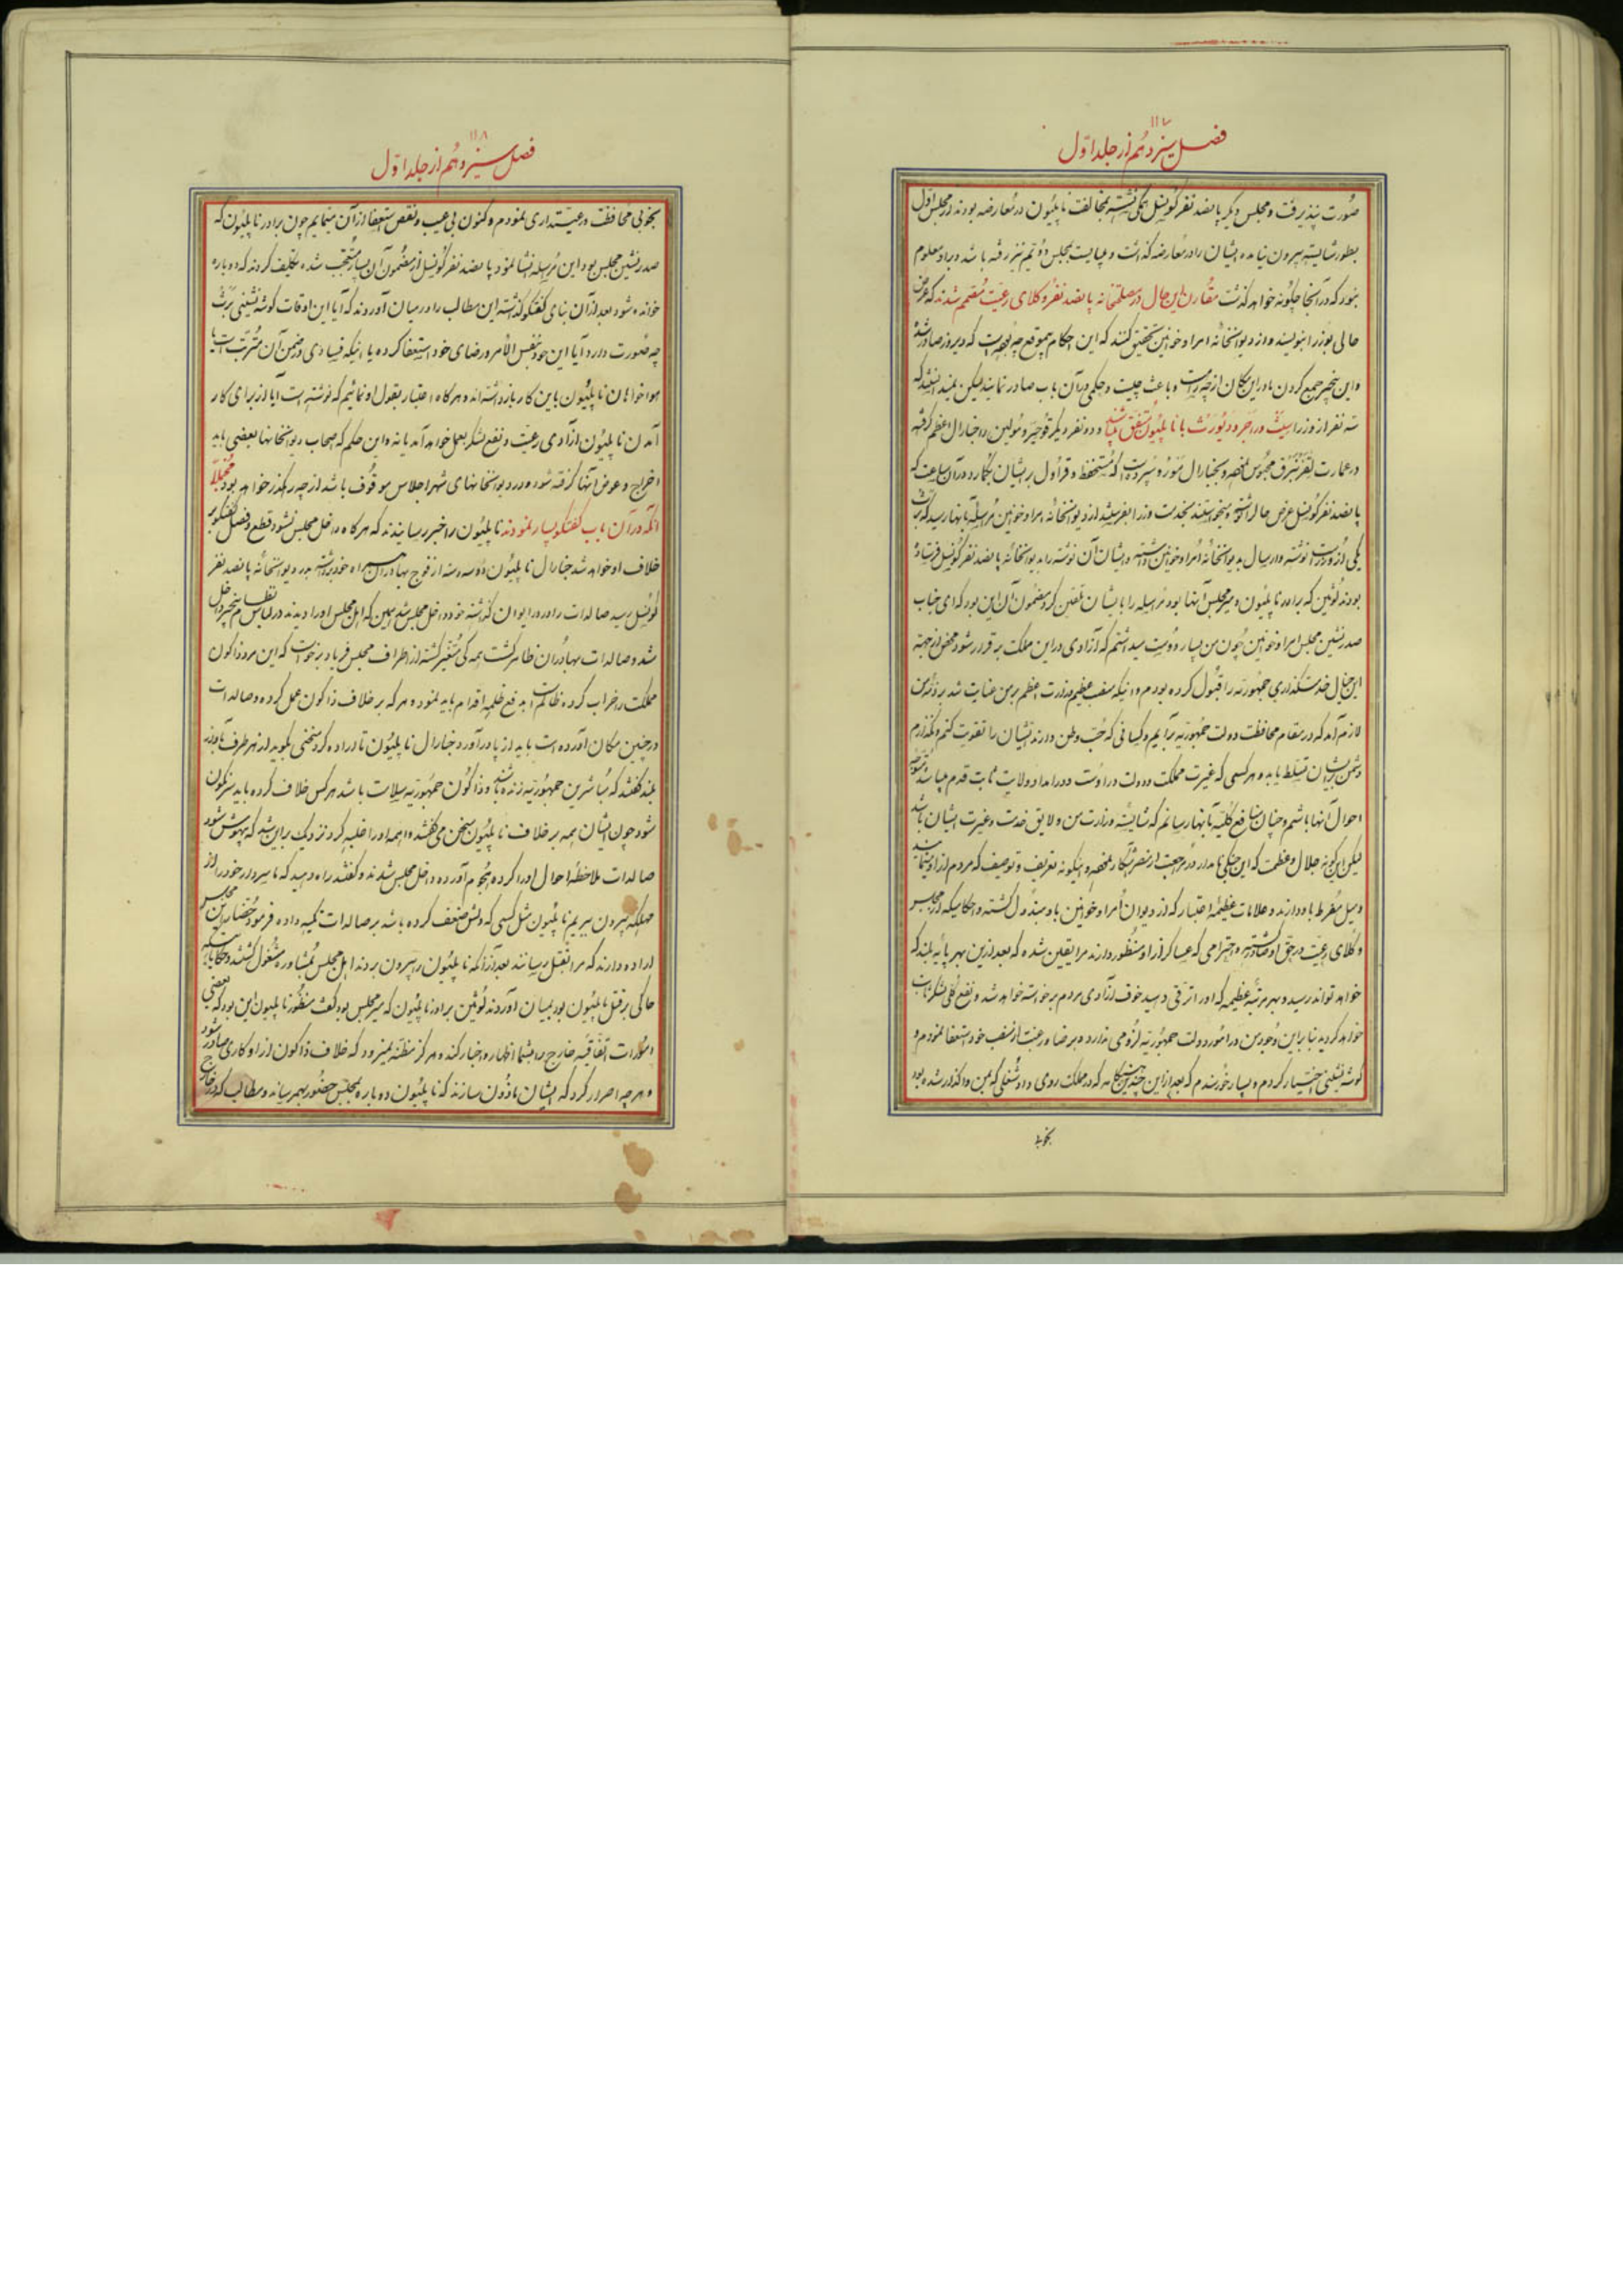 ۱۱۷
فصل سیزدهم از جلد اول
صورت پذیرفت و مجلس دیگر پانصد نفر کونسل تمکی نشسته بمخالفت ناپلیون در معارضه بودند از مجلس اول
بطور شایسته بیرون نیامده ایشان را در معارضه گذاشت و میبایست بمجلس دویم نیز رفته باشد و براو معلوم
نبود که در آنجا چگونه خواهد گذشت مقارن این حال در مصلحتخانه پانصد نفر وکلای رعیت مصمم شدند که عرض
حالی بوزرا بنویسند و از دیوانخانه امرا و خوانین تحقیق کنند که این احکام بیموقع چه بوده است که دیروز صادر شده
و این بیخبر جمع کردن ما در این مکان از چه راه است و باعث چیست و حکمی در آن باب صادر نمایند لیکن نمیدانستند که
سه نفر از وزرا سیث و راجر دوکوث با ناپلیون متفق میباشند و دو نفر دیگر قوجیر و مولین را جنارال اعظم گرفته
در عمارت لقزنبرق محبوس نموده و بجنارال مورو سپرده است که مستحفظ و قراول بر ایشان بگمارد در آن ساعت که
پانصد نفر کونسل عرض حال را نوشته و میخواستند بخدمت وزرا بفرستند از دیوانخانه امرا و خوانین مراسله بآنها رسید که برث
یکی از وزراست نوشته و ارسال بدیوانخانه امرا و خوانین داشته و ایشان آن نوشته را بدیوانخانه پانصد نفر کونسل فرستاده
بودند لوئین که برادر ناپلیون و میر مجلس آنها بود مراسله را بایشان تلقین کرد مضمون آن این بود که ای جناب
صدرنشین مجلس امرا و خوانین چون من بسیار دوست میداشتم که آزادی در این مملکت برقرار شود محض از جهة
این خیال خدمتگذاری جمهوریه را قبول کرده بودم و اینکه منصب عظیم وزارت اعظم بر من عنایت شد بر ذمه من
لازم آمد که در مقام محافظت دولت جمهوریه برآیم و کسانی که حب وطن دارند ایشان را تقویت کنم و نگذارم
دشمن بر ایشان تسلط یابد و هر کسی که غیرت مملکت و دولت در اوست و در امداد ولایت ثابت قدم میباشد متوجه
احوال آنها باشم و چنان منافع کلیه بآنها رسانم که شایسته وزارت من و لایق خدمت و غیرت ایشان باشد
لیکن این گونه جلال و عظمت که این جنگی نامدار در مراجعت از مصر آشکار نموده و اینگونه تعریف و توصیف که مردم از او مینمایند
و میل مفرط باو دارند و علامات عظیمه اعتبار که از دیوان امرا و خوانین باو مبذول گشته و احکامیکه از مجلس
وکلای رعیت در حق او صادر گشته و احترامی که عساکر از او منظور دارند مرا یقین شده که بعد ازین بهر پایه بلند که
خواهد تواند رسید و بهر مرتبه عظیمه که او را ترقی دهید خوف از آزادی مردم برخواسته خواهد شد و نفع کلی لشکر نایاب
خواهد گردید بنابراین وجود من در امور دولت جمهوریه لزومی ندارد و برضا و رغبت از منصب خود استعفا نمودم و
گوشه نشینی اختیار کردم و بسیار خورسندم که بعد از این چندین هنگامه که در مملکت روی داد شغلی که بمن واگذار شده بود
بخوبی
۱۱۸
فصل سیزدهم از جلد اول
بخوبی محافظت و رعیتداری نمودم و کنون بی عیب و نقص استعفا از آن مینمایم چون برادر ناپلیون که
صدرنشین مجلس بود این مرسله انشا نمود پانصد نفر کونسل از مضمون آن بسیار متعجب شده تکلیف کردند که دوباره
خوانده شود بعد از آن بنای گفتگو گذاشته این مطالب را در میان آوردند که آیا این اوقات گوشه نشینی برث
چه صورت دارد آیا این خود بنفس الامر و رضای خود استعفا کرده یا اینکه فسادی در ضمن آن مترتب است آیا
هواخواهان ناپلیون باین کار بازداشته اند و هرگاه اعتبار بقول او نمائیم که نوشته است آیا از برای کار
آمدن ناپلیون آزادی رعیت و نفع لشکر بعمل خواهد آمد یا نه و این حکم که اصحاب دیوانخانها بعضی باید
اخراج و عوض آنها گرفته شود و در دیوانخانهای شهر اجلاس موقوف باشد از چه رهگذر خواهد بود مجملا
آنکه در آن باب گفتگو بسیار نمودند ناپلیون را خبر رسانیدند که هرگاه داخل مجلس نشود قطع و فصل گفتگو بر
خلاف او خواهد شد جنارال ناپلیون دو سه دسته از فوج بهادران همراه خود برداشته بدر دیوانخانه پانصد نفر
کونسل رسید صالدات را در در ایوان گذاشته خود داخل مجلس شد همین که اهل مجلس او را دیدند در لباس نظام بیخبر داخل
شد و صالدات بهادران ظاهر گشت همه گی متغیر گشته از اطراف مجلس فریاد برخواست که این مرد ذاکون
مملکت را خراب کرده ظالم است بدفع ظلم اقدام باید نمود و هر که بر خلاف ذاکون عمل کرده و صالدات
در چنین مکان آورده است باید از پا درآورد جنارال ناپلیون تا اراده کرد سخنی بگوید از هر طرف بآواز
بلند گفتند که مباشرین جمهوریه زنده باشند و ذاکون جمهوریه سلامت باشد هرکس خلاف کرده باید سرنگون
شود چون ایشان همه بر خلاف ناپلیون سخن می گفتند واهمه او را غلبه کرد نزدیک براین شد که بیهوش شود
صالدات ملاحظه احوال او را کرده هجوم آورده داخل مجلس شدند و گفتند راه دهید که ما سردار خود را از
مهلکه بیرون بریم ناپلیون مثل کسی که دلش ضعف کرده باشد بر صالدات تکیه داده فرمود حضار این مجلس
اراده دارند که مرا بقتل رسانند بعد از آنکه ناپلیون را بیرون بردند اهل مجلس بمشاوره مشغول گشتند و حکایاتیکه
حاکی بر قتل ناپلیون بود بمیان آوردند لوئین برادر ناپلیون که میر مجلس بود گفت منظور ناپلیون این بود که بعضی
امورات اتفاقیه خارج را بشما اظهار و اخبار کند و هرگز مظنه نمیرود که خلاف ذاکون از او کاری صادر شود
و هر چه اصرار کرد که ایشان ماذون سازند که ناپلیون دوباره بمجلس حضور بهم رساند و مطالب که در خارج